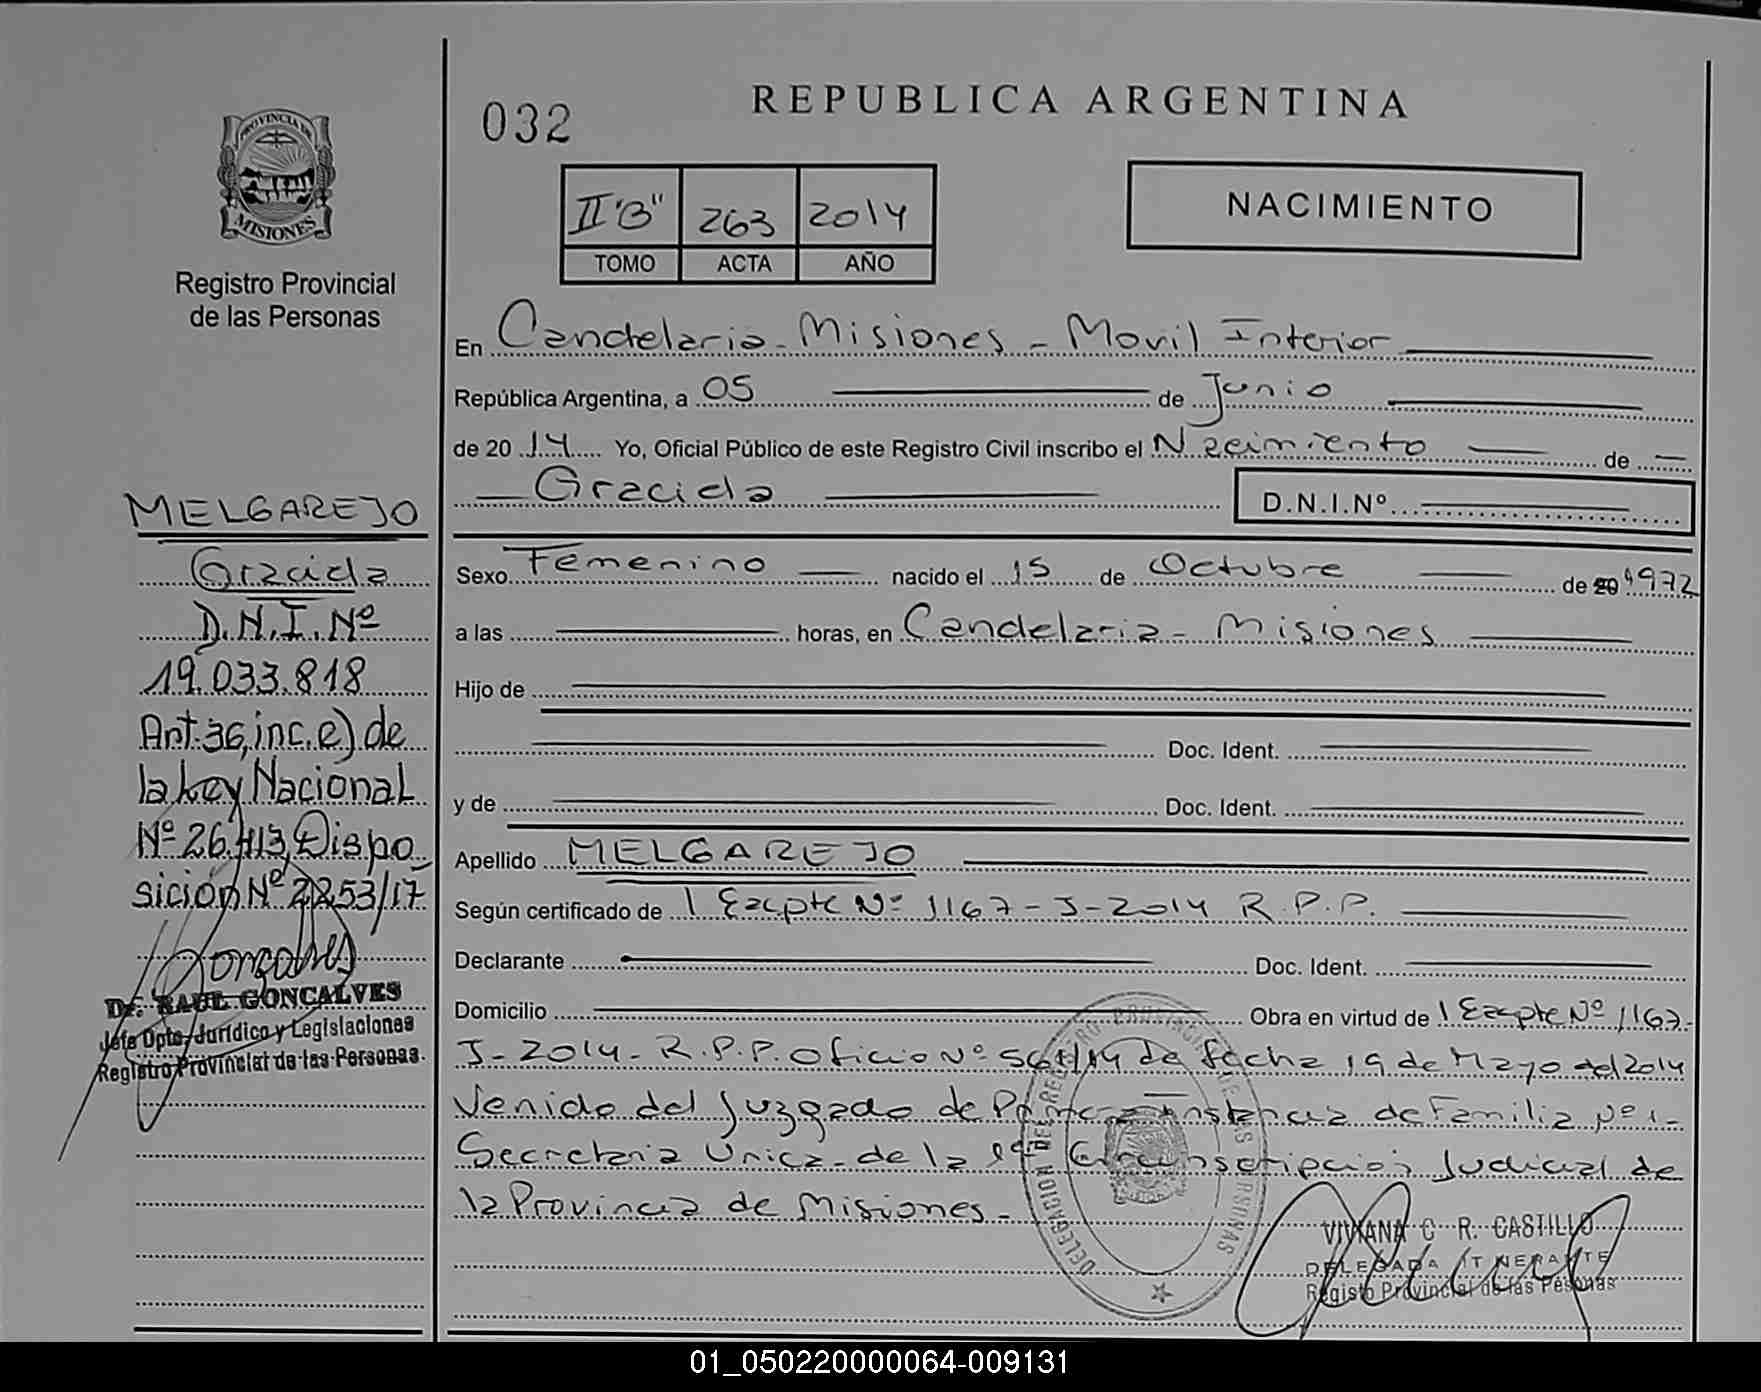 032
REPUBLICA ARGENTINA
PROVINCIA DE
MISIONES
Registro Provincial
de las Personas
II "B" 263 2014
TOMO ACTA AÑO
NACIMIENTO
En Candelaria - Misiones - Movil Interior
República Argentina, a 05 de Junio
de 2014 Yo, Oficial Público de este Registro Civil inscribo el Nacimiento de
Graciela
D.N.I.Nº
Sexo Femenino nacido el 15 de Octubre de 20 1972
a las horas, en Candelaria - Misiones
Hijo de
Doc. Ident.
y de Doc. Ident.
Apellido MELGAREJO
Según certificado de 1 Expte Nº 1167-J-2014 R.P.P.
Declarante Doc. Ident.
Domicilio Obra en virtud de 1 Expte Nº 1167-
J-2014-R.P.P. Oficio Nº 561/14 de fecha 19 de Mayo del 2014
Venido del Juzgado de Primera Instancia de Familia Nº 1-
Secretaria Unica - de la 1ª Circunscripcion Judicial de
la Provincia de Misiones -
MELGAREJO
Graciela
D.N.I. Nº
19.033.818
Art. 36, inc. e) de
la Ley Nacional
Nº 26.413, Dispo
sición Nº 2253/17.
Goncalves
Dr. RAUL GONCALVES
Jefe Dpto. Jurídico y Legislaciones
Registro Provincial de las Personas.
DELEGACION DEL REGISTRO PROVINCIAL DE LAS PERSONAS
VIVIANA C R. CASTILLO
DELEGADA ITINERANTE
Registo Provincial de las Pesonas
01_050220000064-009131